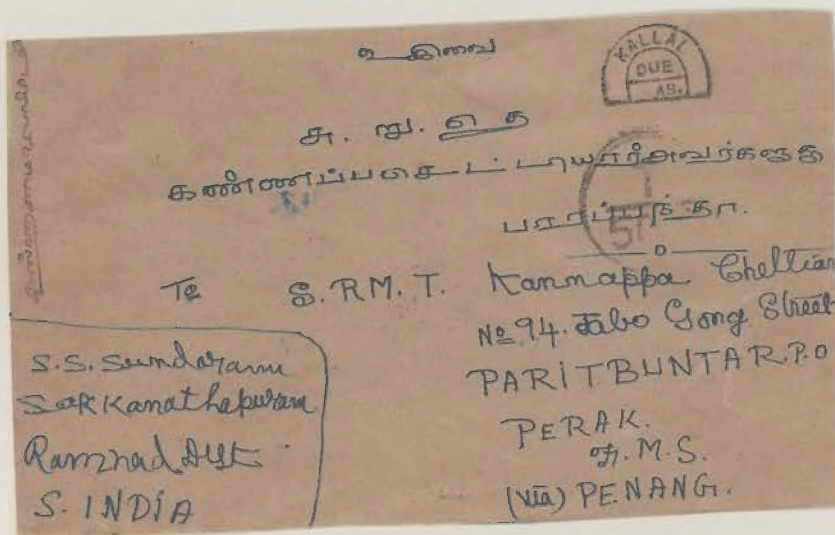 உ சிவை
KALLAL
DUE
AS.
சு. று. எ த
கண்ணப்பசெட்டியார்அவர்களுக்கு
To S. RM. T. Kannappa Chettiar
No 94. Jabo Gong Street
PARITBUNTAR. P.O
PERAK.
F. M. S.
(via) PENANG.
S. S. Sundaram
Sokkanathapuram
Ramnad Dist
S. INDIA